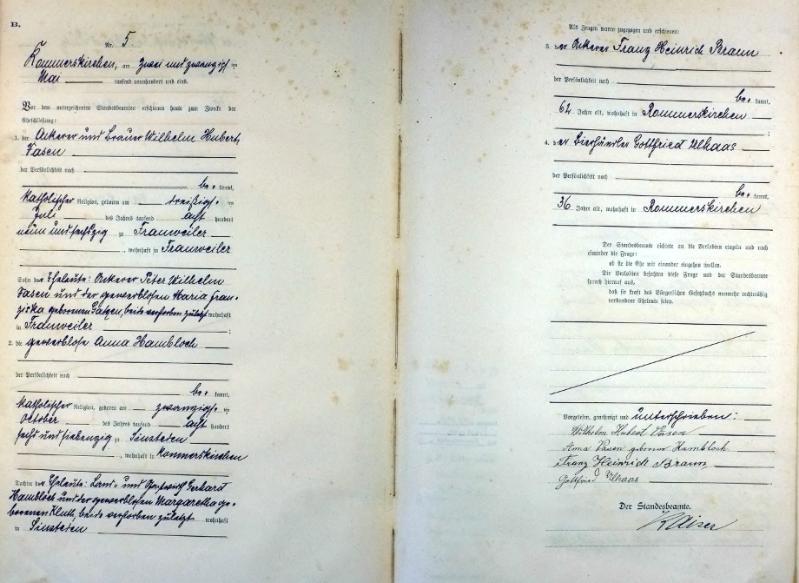 B.
Nr. 5
Rommerskirchen, am zwei und zwanzigsten
Mai tausend neunhundert und eins.
Vor dem unterzeichneten Standesbeamten erschienen heute zum Zwecke der
Eheschließung:
1. der Ackerer und Brauer Wilhelm Hubert
Vasen
der Persönlichkeit nach
be kannt,
katholischer Religion, geboren am dreißigsten
Juli des Jahres tausend acht hundert
neun und sechszig zu Frauweiler
, wohnhaft in Frauweiler
Sohn der Eheleute: Ackerer Peter Wilhelm
Vasen und der gewerblosen Maria Fran-
ziska geborenen Gatzen, beide verstorben zuletzt wohnhaft
in Frauweiler ;
2. die gewerblose Anna Hambloch
der Persönlichkeit nach
be kannt,
katholischer Religion, geboren am zwanzigsten
October des Jahres tausend acht hundert
sechs und siebenzig zu Sinsteden
, wohnhaft in Rommerskirchen
Tochter der Eheleute: Land- und Gerhard
Hambloch und der gewerblosen Margaretha ge-
borenen Kluth, beide verstorben zuletzt wohnhaft
in Sinsteden
Als Zeugen waren zugezogen und erschienen:
3. der Ackerer Franz Heinrich Braun
der Persönlichkeit nach
be kannt,
62 Jahre alt, wohnhaft in Rommerskirchen
;
4. der Bierhändler Gottfried Ulhaas
der Persönlichkeit nach
be kannt,
36 Jahre alt, wohnhaft in Rommerskirchen
Der Standesbeamte richtete an die Verlobten einzeln und nach
einander die Frage:
ob sie die Ehe mit einander eingehen wollen.
Die Verlobten bejahten diese Frage und der Standesbeamte
sprach hierauf aus,
daß sie kraft des Bürgerlichen Gesetzbuchs nunmehr rechtmäßig
verbundene Eheleute seien.
Vorgelesen, genehmigt und unterschrieben:
Wilhelm Hubert Vasen
Anna Vasen geborene Hambloch
Franz Heinrich Braun
Gottfried Ulhaas
Der Standesbeamte.
Kaiser